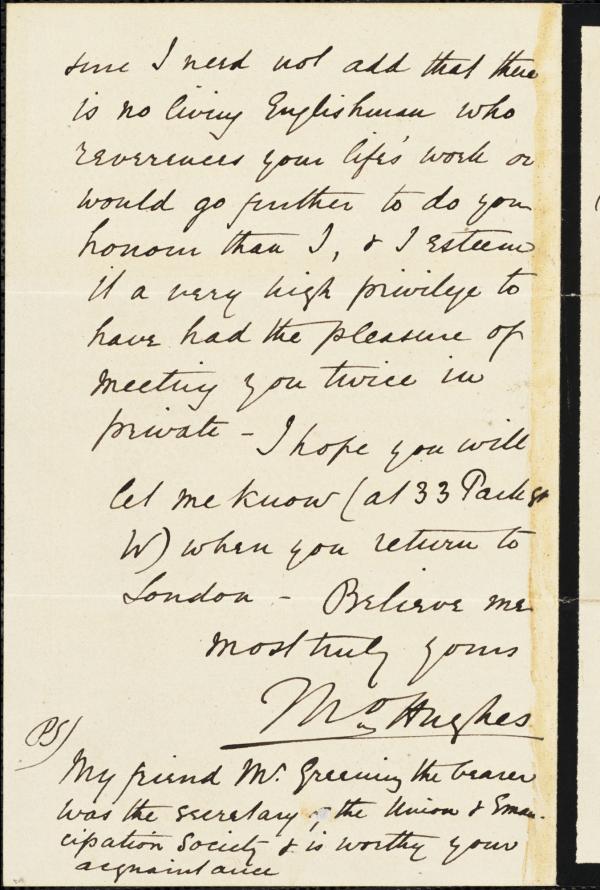 sure I need not add that there
is no living Englishman who
reverences your life's work or
would go further to do you
honour than I, & I esteem
it a very high privilege to
have had the pleasure of
meeting you twice in
private - I hope you will
let me know (at 33 Park St
W) when you return to
London - Believe me
most truly yours
Thos Hughes
PS)
My friend Mr. Greening the bearer
was the secretary of the Union & Eman-
cipation Society & is worthy your
acquaintance